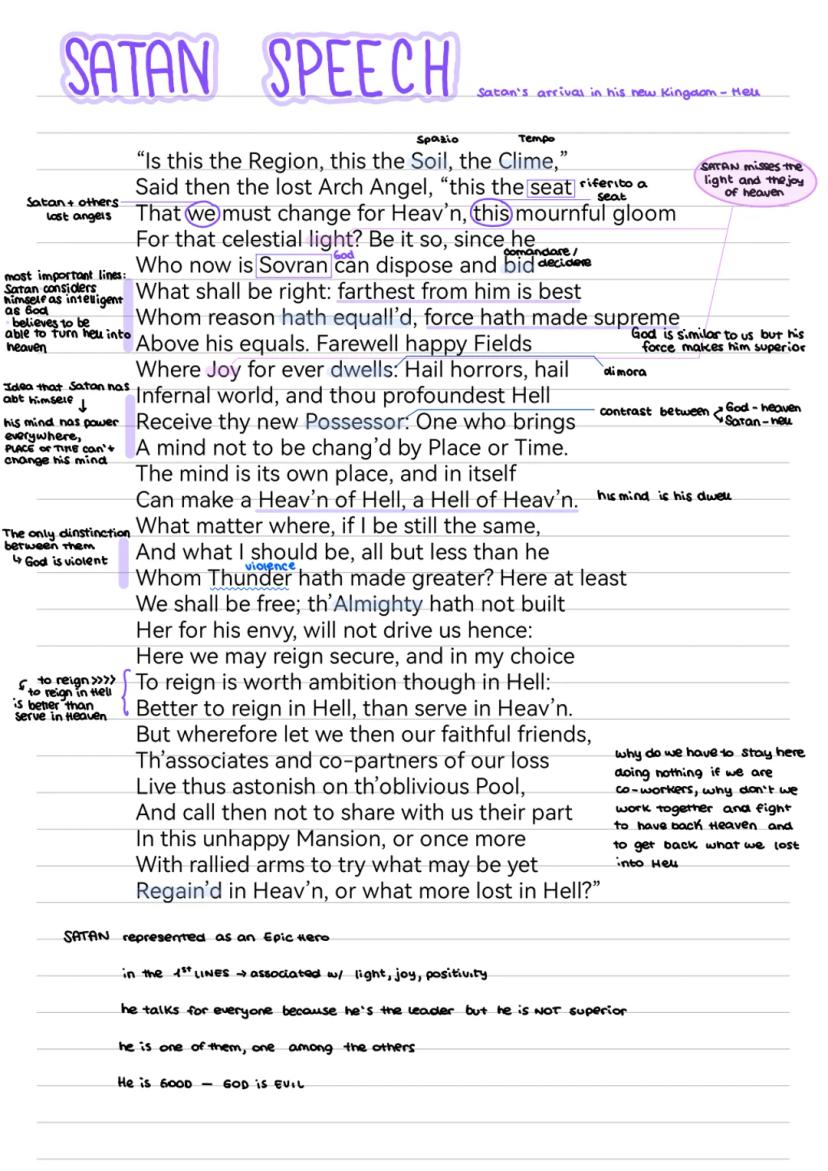 SATAN SPEECH
Satan's arrival in his new Kingdom - Hell
Spazio
Tempo
“Is this the Region, this the Soil, the Clime,”
Said then the lost Arch Angel, “this the seat
riferito a
seat
SATAN misses the
light and the joy
of heaven
Satan + others
lost angels
That we must change for Heav’n, this mournful gloom
For that celestial light? Be it so, since he
God
comandare/
decidere
Who now is Sovran can dispose and bid
most important lines:
Satan considers
himself as intelligent
as God
believes to be
able to turn hell into
heaven
What shall be right: farthest from him is best
Whom reason hath equall’d, force hath made supreme
God is similar to us but his
force makes him superior
Above his equals. Farewell happy Fields
Where Joy for ever dwells: Hail horrors, hail
dimora
Idea that Satan has
abt himself ↓
his mind has power
everywhere,
PLACE or TIME can't
change his mind
Infernal world, and thou profoundest Hell
Receive thy new Possessor: One who brings
contrast between
God - heaven
Satan - hell
A mind not to be chang’d by Place or Time.
The mind is its own place, and in itself
Can make a Heav’n of Hell, a Hell of Heav’n.
his mind is his dwell
What matter where, if I be still the same,
The only dinstinction
between them
↳ God is violent
And what I should be, all but less than he
violence
Whom Thunder hath made greater? Here at least
We shall be free; th’Almighty hath not built
Her for his envy, will not drive us hence:
Here we may reign secure, and in my choice
to reign >>>>
to reign in Hell
is better than
serve in Heaven
To reign is worth ambition though in Hell:
Better to reign in Hell, than serve in Heav’n.
But wherefore let we then our faithful friends,
Th’associates and co-partners of our loss
Live thus astonish on th’oblivious Pool,
And call then not to share with us their part
In this unhappy Mansion, or once more
With rallied arms to try what may be yet
Regain’d in Heav’n, or what more lost in Hell?”
why do we have to stay here
doing nothing if we are
co-workers, why don't we
work together and fight
to have back Heaven and
to get back what we lost
into Hell
SATAN represented as an Epic Hero
in the 1st LINES → associated w/ light, joy, positivity
he talks for everyone because he's the leader but he is NOT superior
he is one of them, one among the others
He is GOOD — GOD is EVIL